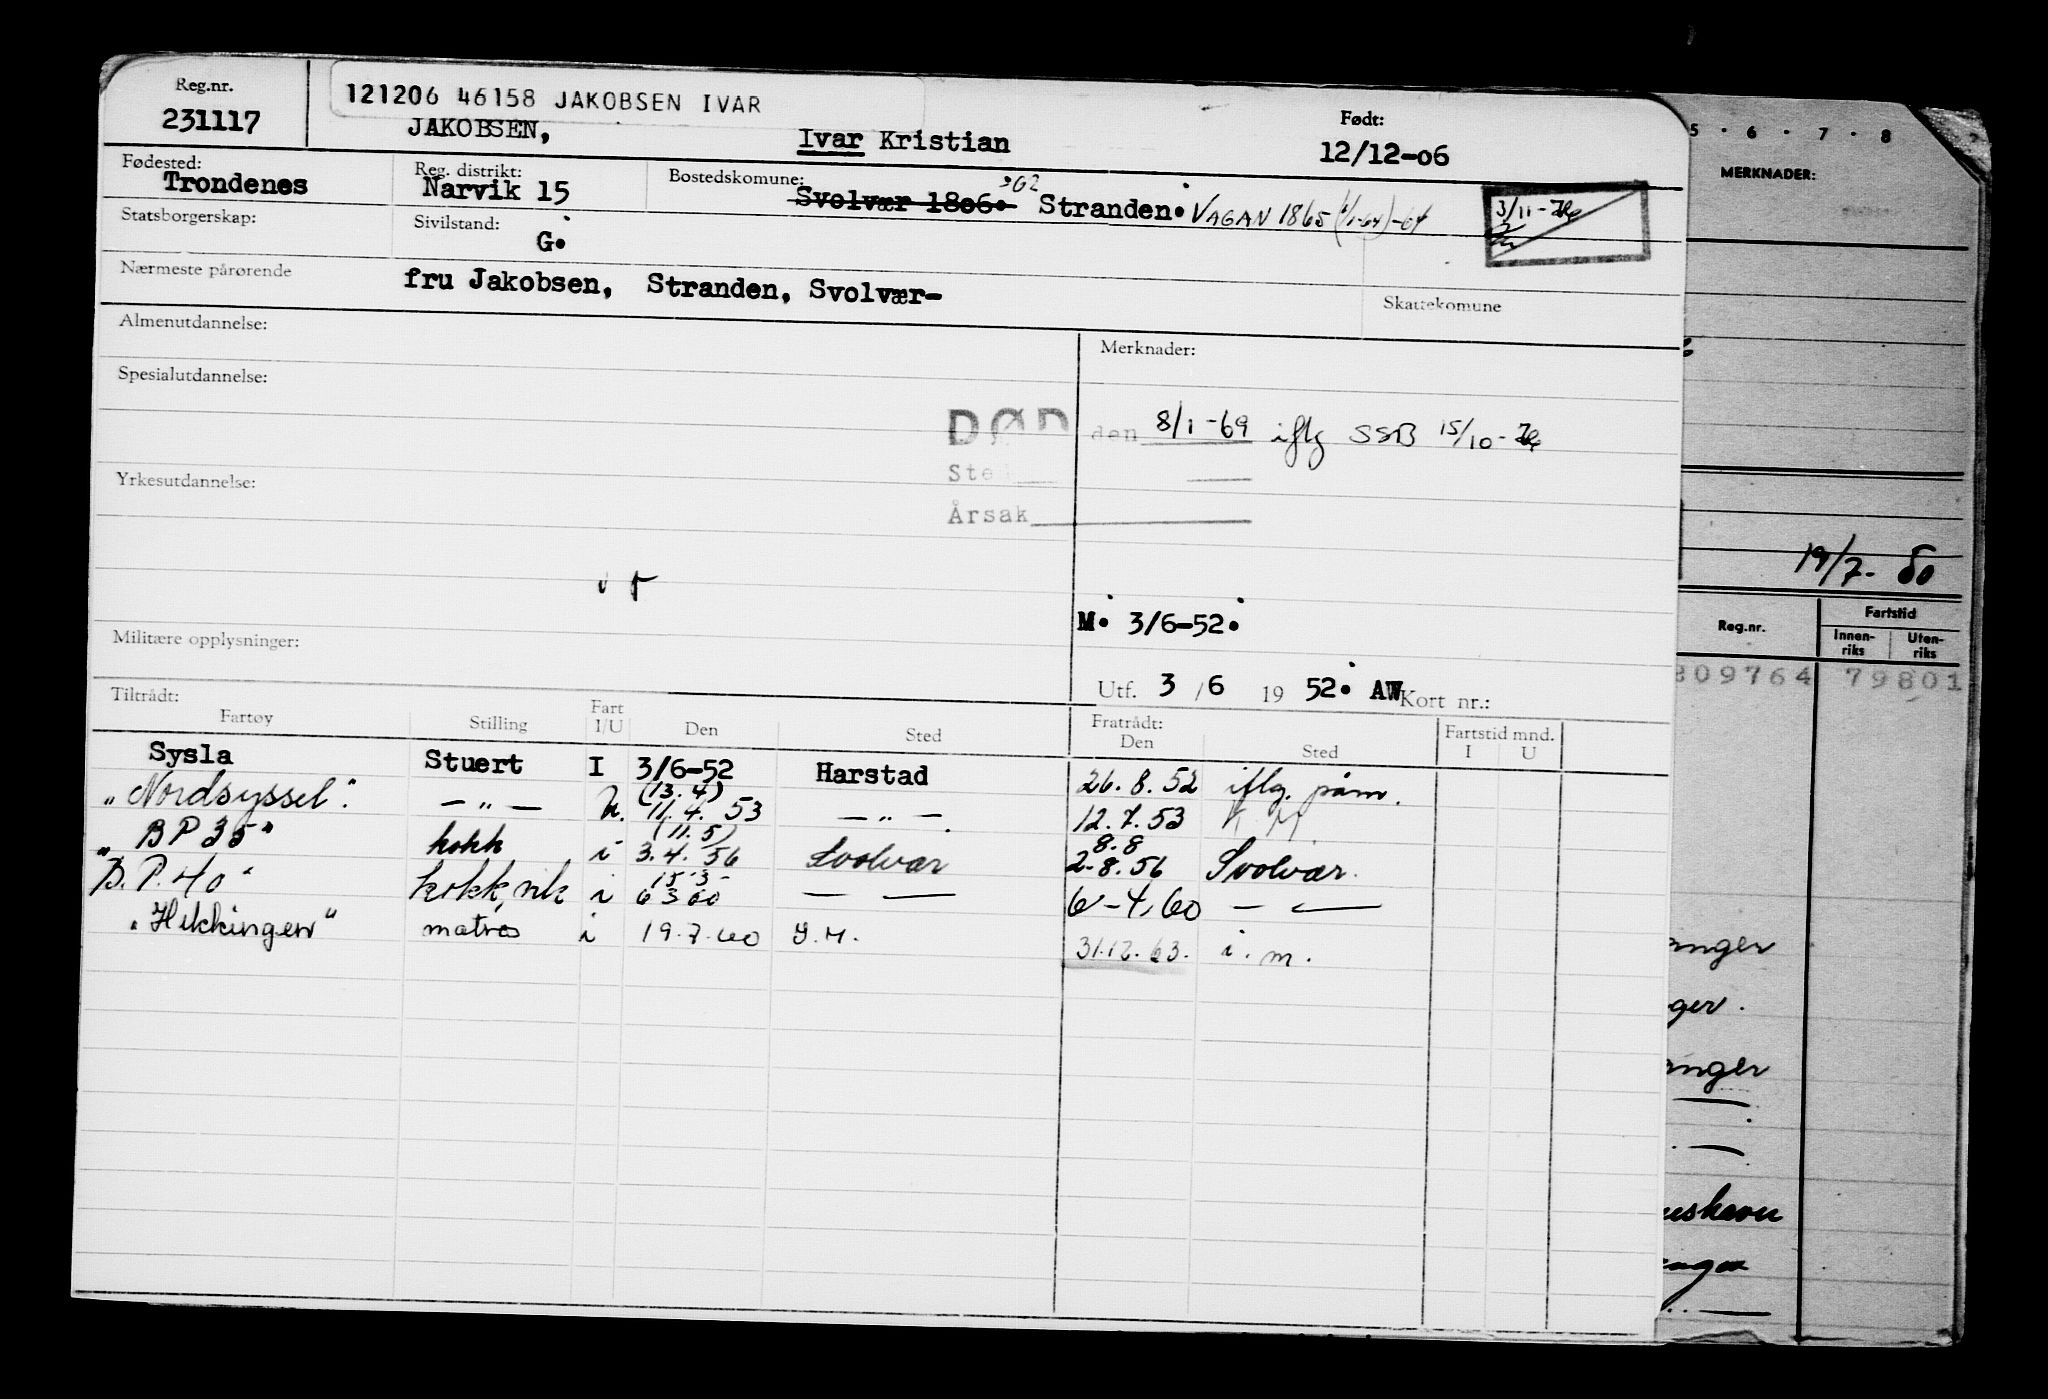 Reg.nr.
231117
121206 46158 JAKOBSEN IVAR
JAKOBSEN, Ivar Kristian
Født:
12/12-06
Fødested:
Trondenes
Reg. distrikt:
Narvik 15
Bostedskomune:
Svolvær 1806. Stranden. VAGAN 1865
3/11-
Statsborgerskap:
Sivilstand:
G.
Nærmeste pårørende
fru Jakobsen, Stranden, Svolvær-
Skattekomune
Almenutdannelse:
Merknader:
Spesialutdannelse:
DØD den 8/1-69 iflg SSB 15/10-
Sted
Årsak
Yrkesutdannelse:
M. 3/6-52.
Militære opplysninger:
Utf. 3/6 19 52. AW Kort nr.:
Tiltrådt:
Fartøy Stilling Fart I/U Den Sted Fratrådt: Den Sted Fartstid mnd. I U
Sysla Stuert I 3/6-52 Harstad 26.8.52 iflg. påm.
(13.4)
"Nordsyssel". — " — 11.4. 53 — " —. 12.7.53
(11.5) 8.8
"BP 35" kokk i 3.4. 56 Svolvær 2.8.56 Svolvær.
15 3
B.P. 40" kokk i 6 3 60 — — 6-4.60 — —
"Hekkingen" matros i 19.7.60 31.12.63. i.m.
5 · 6 · 7 · 8
MERKNADER:
19/7-50
Reg.nr.
Fartstid
Innen-
riks
Uten-
riks
809764 79801
anger
ger.
anger